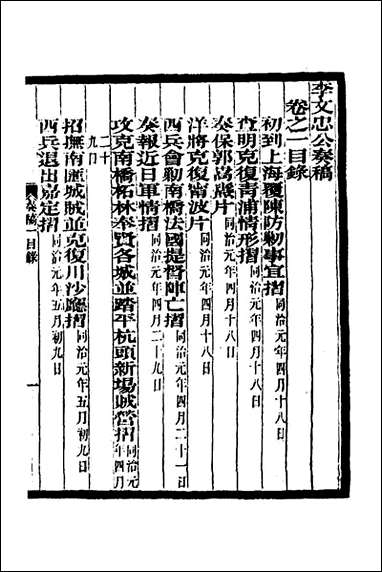 李文忠公奏稿
卷之一目錄
初到上海覆陳防勦事宜摺同治元年四月十八日
查明克復青浦情形摺同治元年四月十八日
奏保郭嵩燾片同治元年四月十八日
洋將克復甯波片同治元年四月十八日
西兵會勦南橋法國提督陣亡摺同治元年四月二十一日
奏報近日軍情摺同治元年四月二十九日
攻克南橋柘林奉賢各城並踏平杭頭新場賊營摺同治元年四月
二十九日
招撫南匯城賊並克復川沙廳摺同治元年五月初九日
西兵退出嘉定摺同治元年五月初九日
奏稿一目錄
一